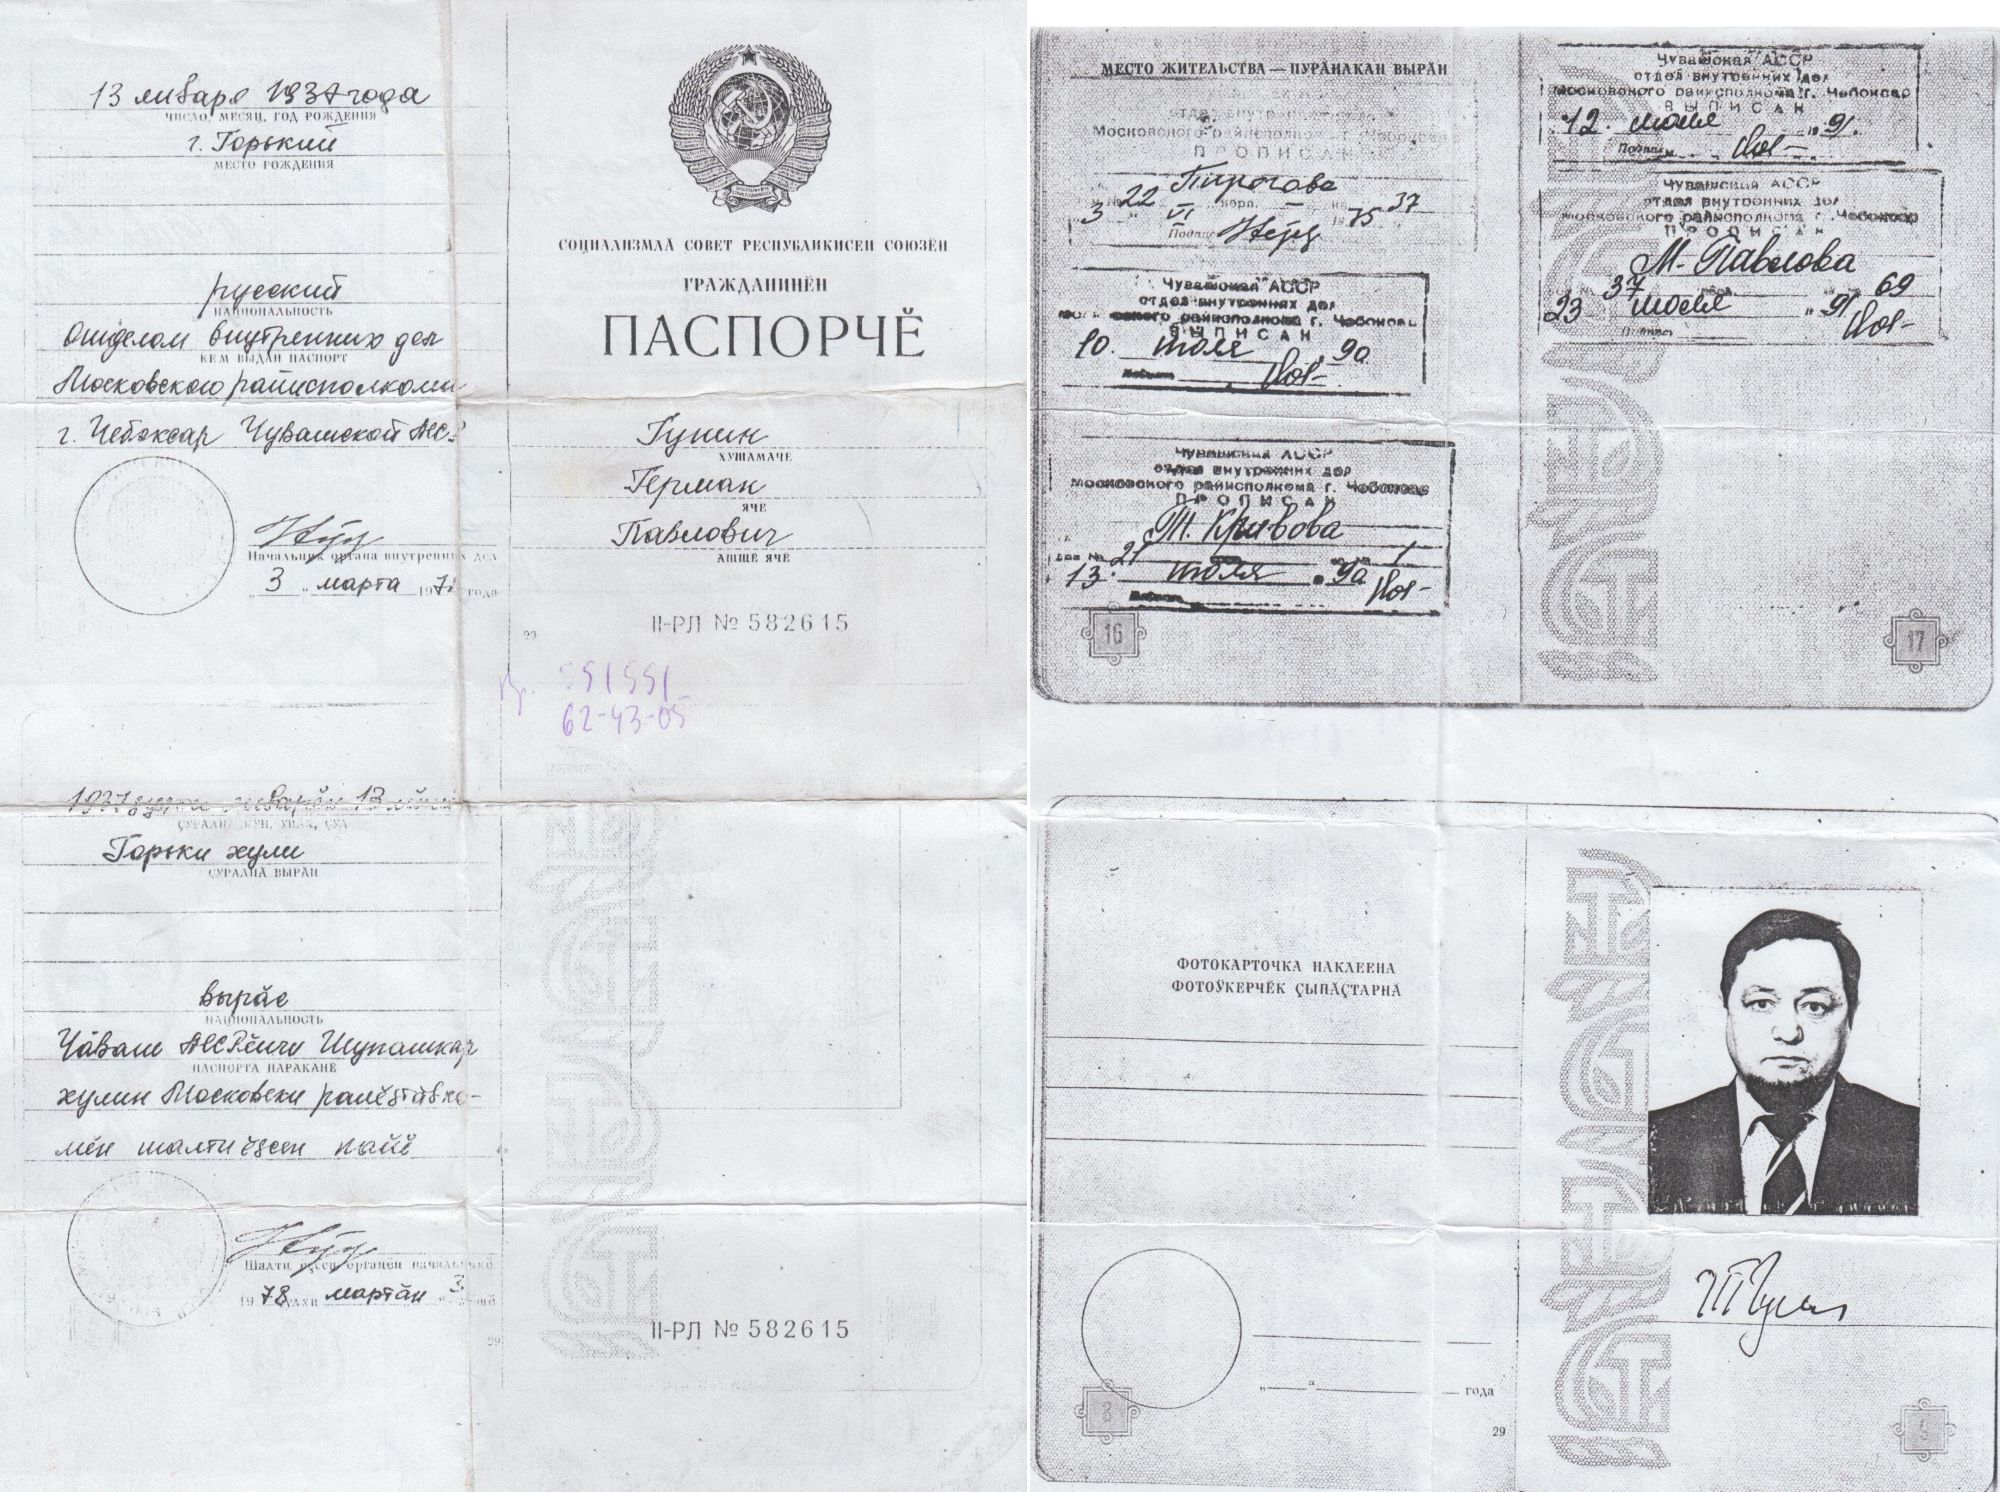 13 января 1937 года
ЧИСЛО, МЕСЯЦ, ГОД РОЖДЕНИЯ
г. Горький
МЕСТО РОЖДЕНИЯ
русский
НАЦИОНАЛЬНОСТЬ
Отделом внутренних дел
КЕМ ВЫДАН ПАСПОРТ
Московского райисполкома
г. Чебоксар Чувашской АССР
Начальник органа внутренних дел
"3" марта 1978 года
СОЦИАЛИЗМЛА СОВЕТ РЕСПУБЛИКИСЕН СОЮЗӖН
ГРАЖДАНИНӖН
ПАСПОРЧӖ
Гунин
ХУШАМАЧӖ
Герман
ЯЧӖ
Павлович
АШШӖ ЯЧӖ
II-РЛ № 582615
29
591551
62-43-05
1937 январӗн 13
ҪУРАЛНӐ КУН, УЙӐХ, ҪУЛ
Горьки хули
ҪУРАЛНӐ ВЫРӐН
вырӑс
НАЦИОНАЛЬНОСТЬ
Чӑваш АССРӗнчи Шупашкар
ПАСПОРТА ПАРАКАНӖ
хулин Московски райӗҫтӑвко-
мӗн шалти ӗҫсен пайӗ
Шалти ӗҫсен органӗн начальникӗ
1978 ҫулхи мартӑн "3"-мӗшӗ
II-РЛ № 582615
МЕСТО ЖИТЕЛЬСТВА — ПУРӐНАКАН ВЫРӐН
отдел внутренних дел
Московского райисполкома г. Чебоксар
ПРОПИСАН
Пирогова
22 корп. – кв. 37
3 VI 1975
Подпись
Чувашская АССР
отдел внутренних дел
Московского райисполкома г. Чебоксар
ВЫПИСАН
10. июля 90
Подпись
Чувашская АССР
отдел внутренних дел
Московского райисполкома г. Чебоксар
ПРОПИСАН
Т. Кривова
21 1
13. июля 90
16
Чувашская АССР
отдел внутренних дел
Московского райисполкома г. Чебоксар
ВЫПИСАН
12. июля 91.
Подпись
Чувашская АССР
отдел внутренних дел
Московского райисполкома г. Чебоксар
ПРОПИСАН
М. Павлова
37 69
23 июля 91
Подпись
17
ФОТОКАРТОЧКА НАКЛЕЕНА
ФОТОӲКЕРЧӖК ҪЫПӐҪТАРНӐ
"___" года
8
29